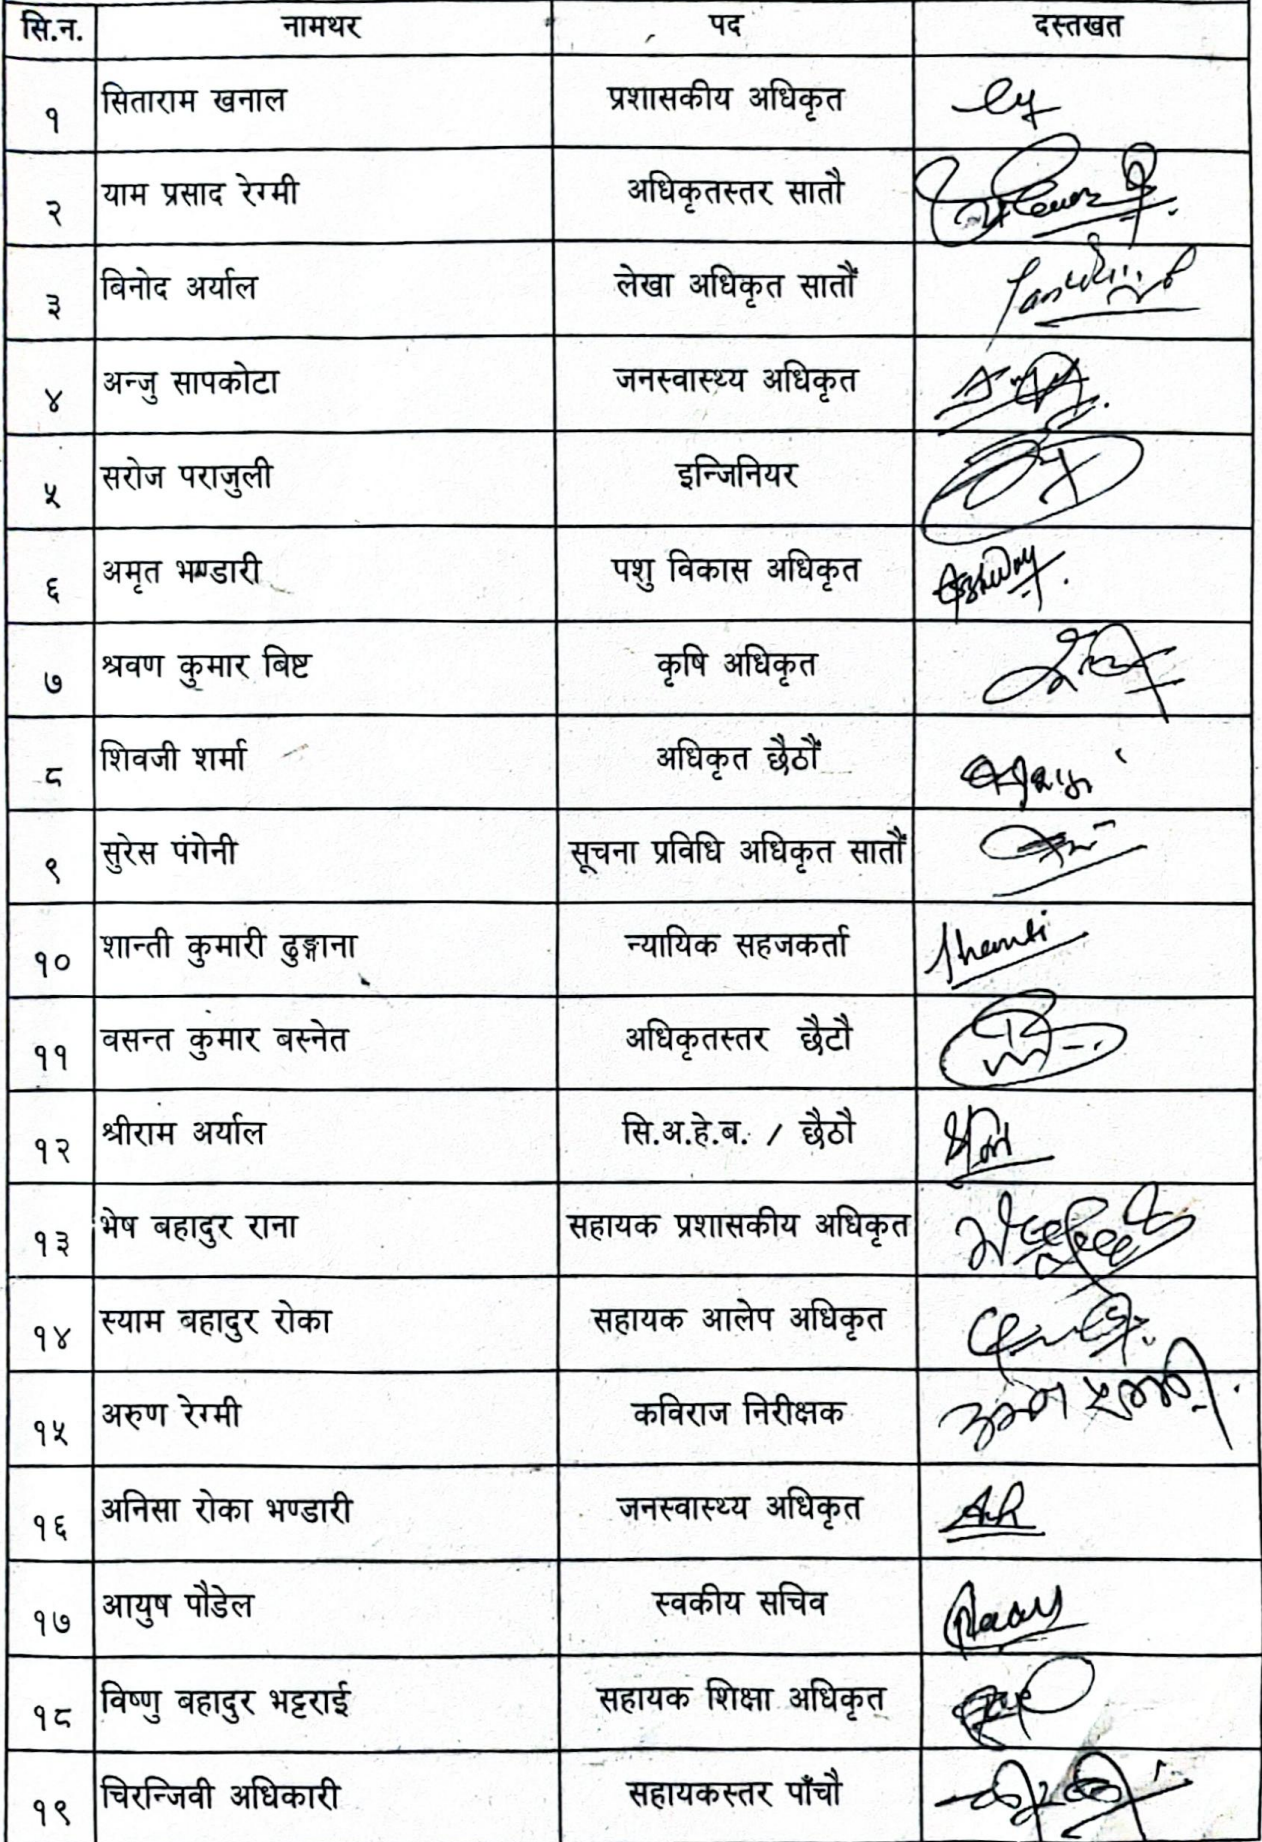 सि.न. नामथर पद दस्तखत
१ सिताराम खनाल प्रशासकीय अधिकृत
२ याम प्रसाद रेग्मी अधिकृतस्तर सातौ
३ बिनोद अर्याल लेखा अधिकृत सातौं
४ अन्जु सापकोटा जनस्वास्थ्य अधिकृत
५ सरोज पराजुली इन्जिनियर
६ अमृत भण्डारी पशु विकास अधिकृत
७ श्रवण कुमार बिष्ट कृषि अधिकृत
८ शिवजी शर्मा अधिकृत छैठौं
९ सुरेस पंगेनी सूचना प्रविधि अधिकृत सातौं
१० शान्ती कुमारी ढुङ्गाना न्यायिक सहजकर्ता Shanti
११ वसन्त कुमार बस्नेत अधिकृतस्तर छैटौ
१२ श्रीराम अर्याल सि.अ.हे.ब. / छैठौ
१३ भेष बहादुर राना सहायक प्रशासकीय अधिकृत
१४ स्याम बहादुर रोका सहायक आलेप अधिकृत
१५ अरुण रेग्मी कविराज निरीक्षक
१६ अनिसा रोका भण्डारी जनस्वास्थ्य अधिकृत
१७ आयुष पौडेल स्वकीय सचिव
१८ विष्णु बहादुर भट्टराई सहायक शिक्षा अधिकृत
१९ चिरन्जिवी अधिकारी सहायकस्तर पाँचौ